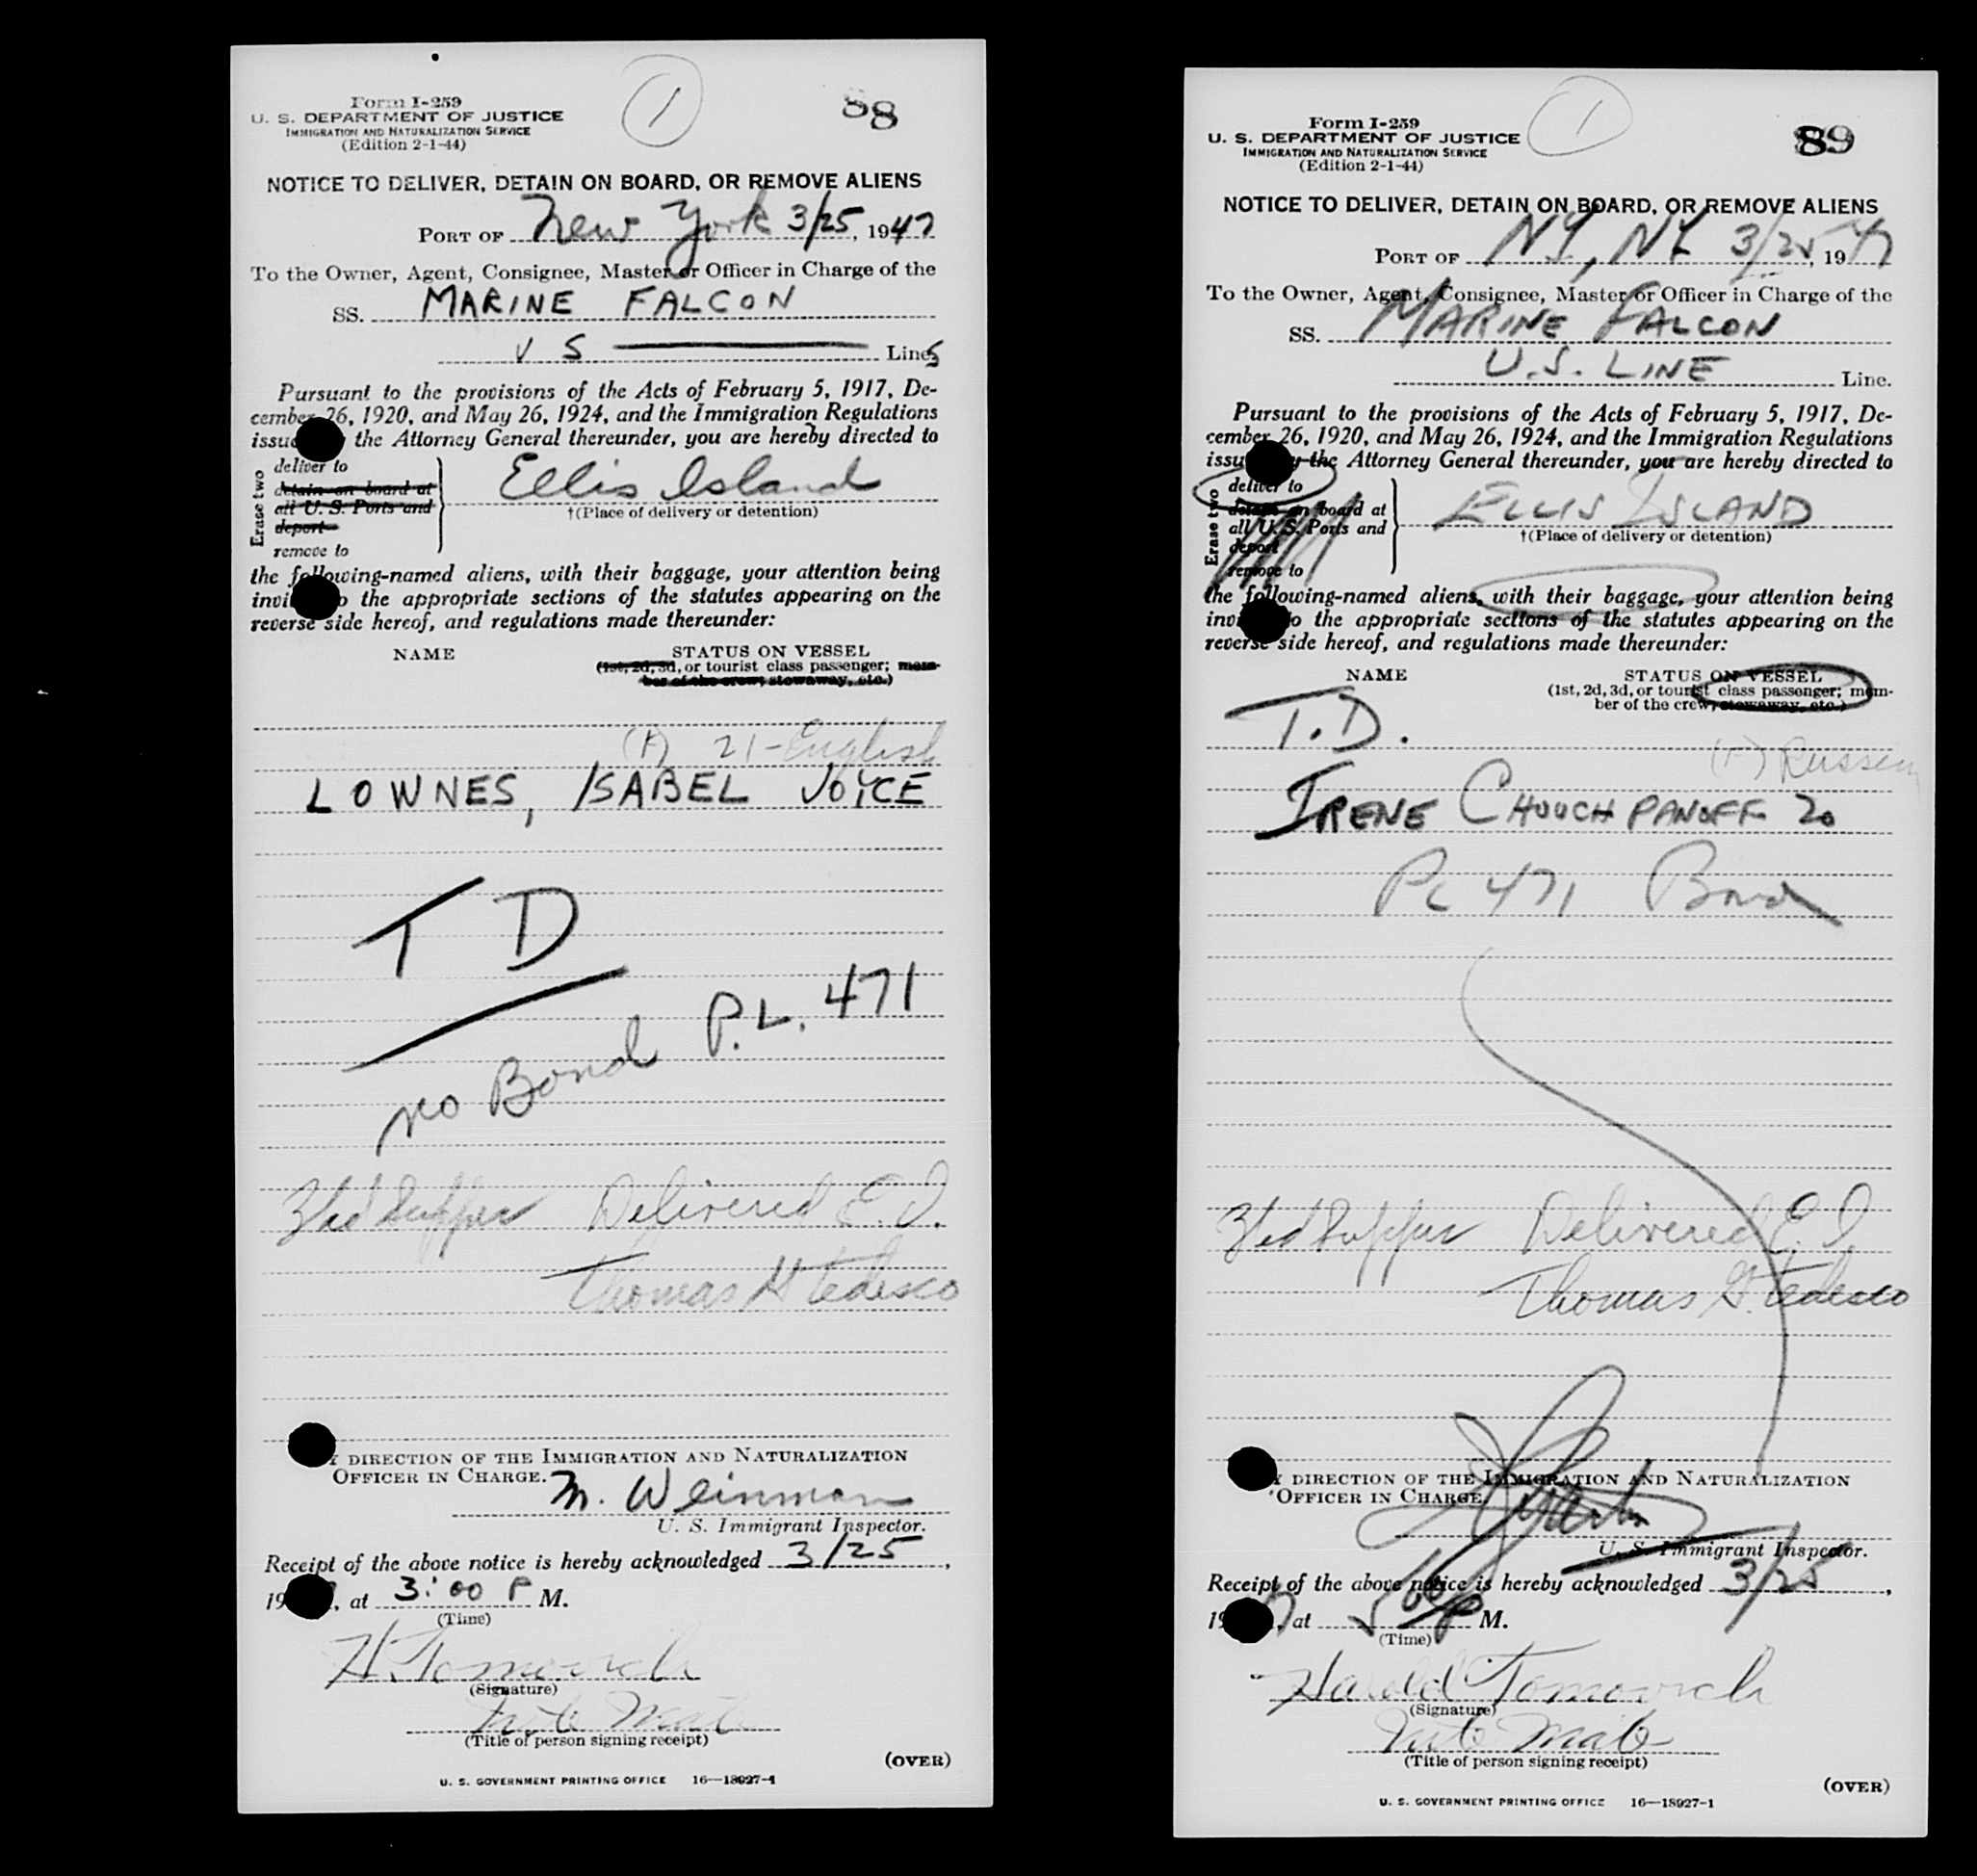 Form I-259
U. S. DEPARTMENT OF JUSTICE
IMMIGRATION AND NATURALIZATION SERVICE
(Edition 2-1-44)
1
88
NOTICE TO DELIVER, DETAIN ON BOARD, OR REMOVE ALIENS
PORT OF New York 3/25, 1947
To the Owner, Agent, Consignee, Master or Officer in Charge of the
SS. MARINE FALCON
U S Lines
Pursuant to the provisions of the Acts of February 5, 1917, De-
cember 26, 1920, and May 26, 1924, and the Immigration Regulations
issu the Attorney General thereunder, you are hereby directed to
Erase two
deliver to
detain on board at
all U. S. Ports and
deport
remove to
Ellis Island
†(Place of delivery or detention)
the following-named aliens, with their baggage, your attention being
invi to the appropriate sections of the statutes appearing on the
reverse side hereof, and regulations made thereunder:
NAME STATUS ON VESSEL
(1st, 2d, 3d, or tourist class passenger; mem-
ber of the crew; stowaway, etc.)
(F) 21-English
LOWNES, ISABEL JOYCE
T D
no Bond P.L. 471
Supper Delivered E.I.
Thomas G Tedesco
Y DIRECTION OF THE IMMIGRATION AND NATURALIZATION
OFFICER IN CHARGE.
M. Weinman
U. S. Immigrant Inspector.
Receipt of the above notice is hereby acknowledged 3/25,
19 , at 3:00 P M.
(Time)
H. Tomovich
(Signature)
Mate
(Title of person signing receipt)
(OVER)
U. S. GOVERNMENT PRINTING OFFICE 16—18927-1
Form I-259
U. S. DEPARTMENT OF JUSTICE
IMMIGRATION AND NATURALIZATION SERVICE
(Edition 2-1-44)
1
89
NOTICE TO DELIVER, DETAIN ON BOARD, OR REMOVE ALIENS
PORT OF NY, NY 3/25, 1947
To the Owner, Agent, Consignee, Master or Officer in Charge of the
SS. MARINE FALCON
U.S. LINE Line.
Pursuant to the provisions of the Acts of February 5, 1917, De-
cember 26, 1920, and May 26, 1924, and the Immigration Regulations
issu y the Attorney General thereunder, you are hereby directed to
Erase two
deliver to
detain on board at
all U. S. Ports and
deport
remove to
ELLIS ISLAND
†(Place of delivery or detention)
the following-named aliens, with their baggage, your attention being
inv to the appropriate sections of the statutes appearing on the
reverse side hereof, and regulations made thereunder:
NAME STATUS ON VESSEL
(1st, 2d, 3d, or tourist class passenger; mem-
ber of the crew; stowaway, etc.)
T.D.
(F) Russian
IRENE CHOUCHPANOFF 20
PL 471 Bond
Supper Delivered E.I.
Thomas G. Tedesco
Y DIRECTION OF THE IMMIGRATION AND NATURALIZATION
OFFICER IN CHARGE.
U. S. Immigrant Inspector.
Receipt of the above notice is hereby acknowledged 3/25,
19 7, at 5 P M.
(Time)
Harold Tomovich
(Signature)
Mate
(Title of person signing receipt)
(OVER)
U. S. GOVERNMENT PRINTING OFFICE 16—18927-1